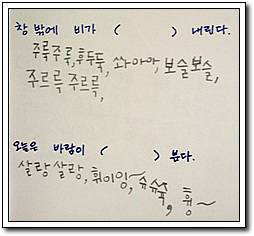 창 밖에 비가 ( ) 내린다.
주룩주룩, 후두둑, 쏴아아, 보슬보슬,
주르륵 주르륵,
오늘은 바람이 ( ) 분다.
살랑살랑, 휘이잉~ 슈슈슉, 휭~